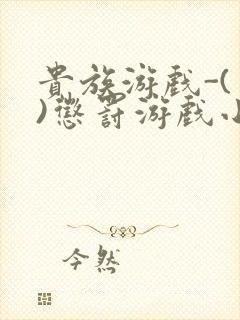 貴族游戲-(
)懲罰游戲小
今然